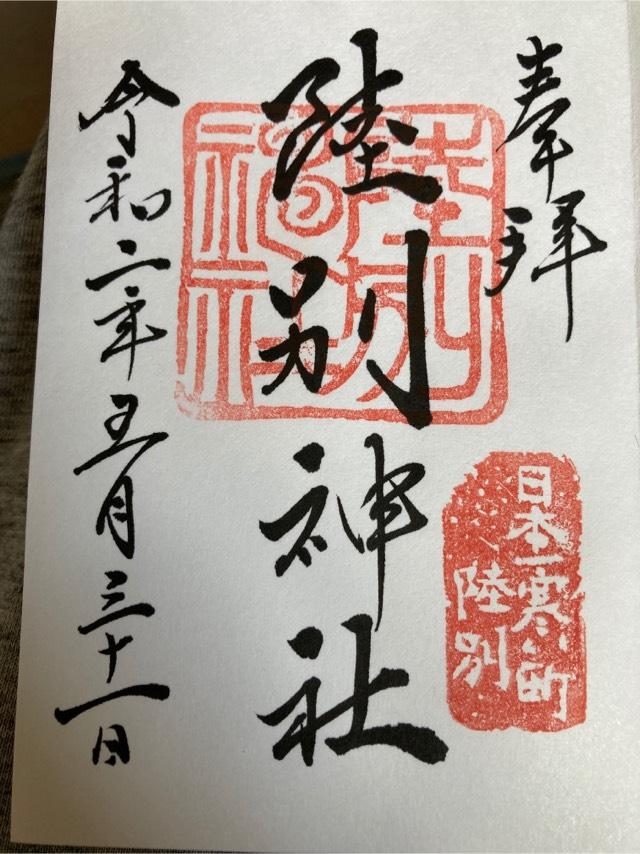 奉拝
陸別神社
陸別神社
日本一寒い町
陸別
令和二年五月三十一日